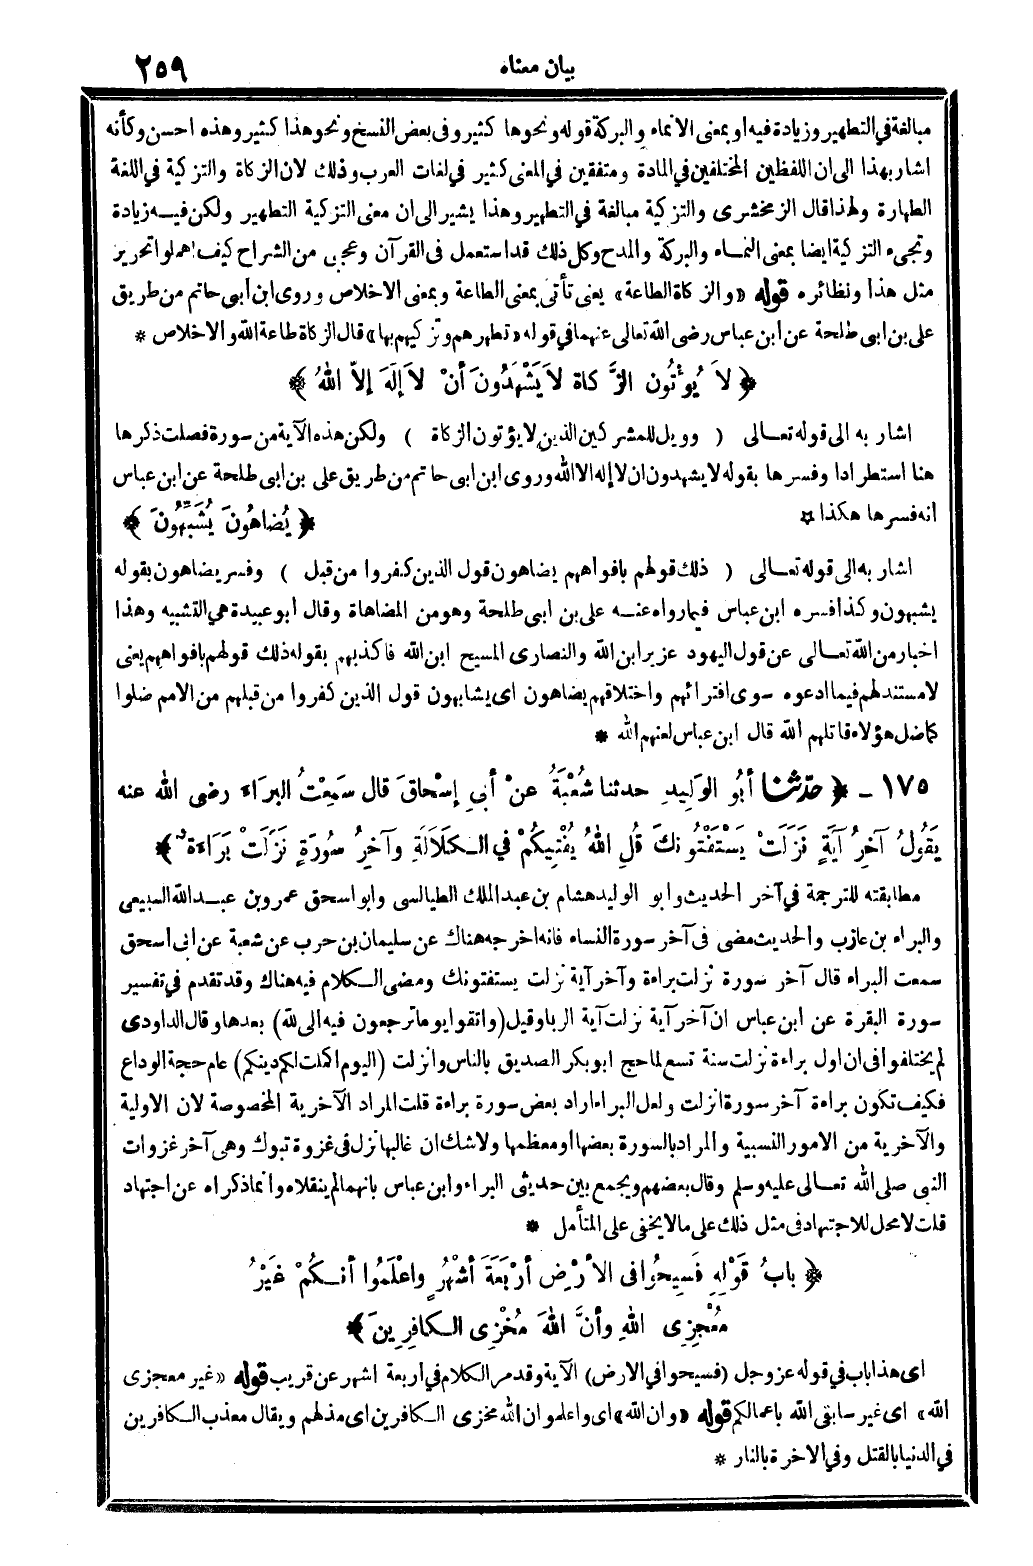 بيان معناه ٢٥٩
مبالغة في التطهير وزيادة فيه او بمعنى الانماء والبركة قوله ونحوها كثير وفى بعض النسخ ونحو هذا كثير وهذه احسن وكأنه
اشار بهذا الى ان اللفظين المختلفين في المادة ومتفقين في المعنى كثير في لغات العرب وذلك لان الزكاة والتزكية في اللغة
الطهارة ولهذا قال الزمخشرى والتزكية مبالغة في التطهير وهذا يشير الى ان معنى التزكية التطهير ولكن فيه زيادة
وتجىء التزكية ايضا بمعنى النماء والبركة والمدح وكل ذلك قد استعمل فى القرآن وعجبى من الشراح كيف اهملوا تحرير
مثل هذا ونظائره قوله «والزكاة الطاعة» يعنى تأتى بمعنى الطاعة وبمعنى الاخلاص وروى ابن أبى حاتم من طريق
على بن ابى طلحة عن ابن عباس رضى الله تعالى عنهما في قوله «تطهرهم وتزكيهم بها» قال الزكاة طاعة الله والاخلاص *
﴿ لاَ يُؤْتُون الزَّكاة لاَ يَشْهَدُونَ أنْ لاَ إلَهَ إلاّ اللهُ ﴾
اشار به الى قوله تعالى ( وويل للمشركين الذين لا يؤتون الزكاة ) ولكن هذه الآية من سورة فصلت ذكرها
هنا استطرادا وفسرها بقوله لا يشهدون ان لا إله الا الله وروى ابن ابى حاتم من طريق على بن ابى طلحة عن ابن عباس
انه فسرها هكذا * ﴿ يُضاهُونَ يُشَبِّهُونَ ﴾
اشار به الى قوله تعالى ( ذلك قولهم بافواههم يضاهون قول الذين كفروا من قبل ) وفسر يضاهون بقوله
يشبهون وكذا فسره ابن عباس فيما رواه عنه على بن ابى طلحة وهو من المضاهاة وقال ابو عبيدة هي التشبيه وهذا
اخبار من الله تعالى عن قول اليهود عزير ابن الله والنصارى المسيح ابن الله فاكذبهم بقوله ذلك قولهم بافواههم يعنى
لا مستند لهم فيما ادعوه سوى افترائهم واختلاقهم يضاهون اى يشابهون قول الذين كفروا من قبلهم من الامم ضلوا
كما ضل هؤلاء قاتلهم الله قال ابن عباس لعنهم الله *
١٧٥ ـ ﴿ حدّثنا أبُو الوَلِيدِ حدثنا شُعْبَةُ عنْ أبي إسْحاقَ قال سَمِعْتُ البرَاءَ رضى الله عنه
يَقُولُ آخِرُ آيَةٍ نَزَلَتْ يَسْتَفْتُونَكَ قُلِ اللهُ يُفْتِيكُمْ في الكَلاَلَةِ وآخِرُ سُورَةٍ نَزَلَتْ بَرَاءَةٌ ﴾
مطابقته للترجمة في آخر الحديث وابو الوليد هشام بن عبد الملك الطيالسى وابو اسحق عمرو بن عبد الله السبيعى
والبراء بن عازب والحديث مضى فى آخر سورة النساء فانه اخرجه هناك عن سليمان بن حرب عن شعبة عن ابى اسحق
سمعت البراء قال آخر سورة نزلت براءة وآخر آية نزلت يستفتونك ومضى الكلام فيه هناك وقد تقدم في تفسير
سورة البقرة عن ابن عباس ان آخر آية نزلت آية الربا وقيل (واتقوا يوما ترجعون فيه الى الله) بعدها وقال الداودى
لم يختلفوا فى ان اول براءة نزلت سنة تسع لما حج ابو بكر الصديق بالناس وانزلت (اليوم اكملت لكم دينكم) عام حجة الوداع
فكيف تكون براءة آخر سورة انزلت ولعل البراء اراد بعض سورة براءة قلت المراد الآخرية المخصوصة لان الاولية
والآخرية من الامور النسبية والمراد بالسورة بعضها او معظمها ولا شك ان غالبها نزل فى غزوة تبوك وهى آخر غزوات
النبى صلى الله تعالى عليه وسلم وقال بعضهم ويجمع بين حديثى البراء وابن عباس بانهما لم ينقلاه وانما ذكراه عن اجتهاد
قلت لا محل للاجتهاد فى مثل ذلك على ما لا يخفى على المتأمل *
﴿ بابُ قَوْلِهِ فَسِيحُوا فى الأرْضِ أرْبَعَةَ أشْهُرٍ واعْلَمُوا أنكُمْ غَيْرُ
مُعْجِزِى اللهِ وأنَّ اللهَ مُخْزِى الكافِرِينَ ﴾
اى هذا باب في قوله عز وجل (فسيحوا في الارض) الآية وقد مر الكلام في اربعة اشهر عن قريب قوله «غير معجزى
الله» اى غير سابقى الله باعمالكم قوله «وان الله» اى واعلموا ان الله مخزى الكافرين اى مذلهم ويقال معذب الكافرين
في الدنيا بالقتل وفي الاخرة بالنار *